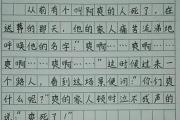 从前有个叫阿爽的人死了，在
送葬的那天，他的家人痛苦流涕地
呼唤他的名字："爽啊……爽
啊……爽啊……"这时候过来一
个路人，看到这场景便问："你们爽
什么呢？"爽的家人顿时泣不成声的
说："爽死了！"